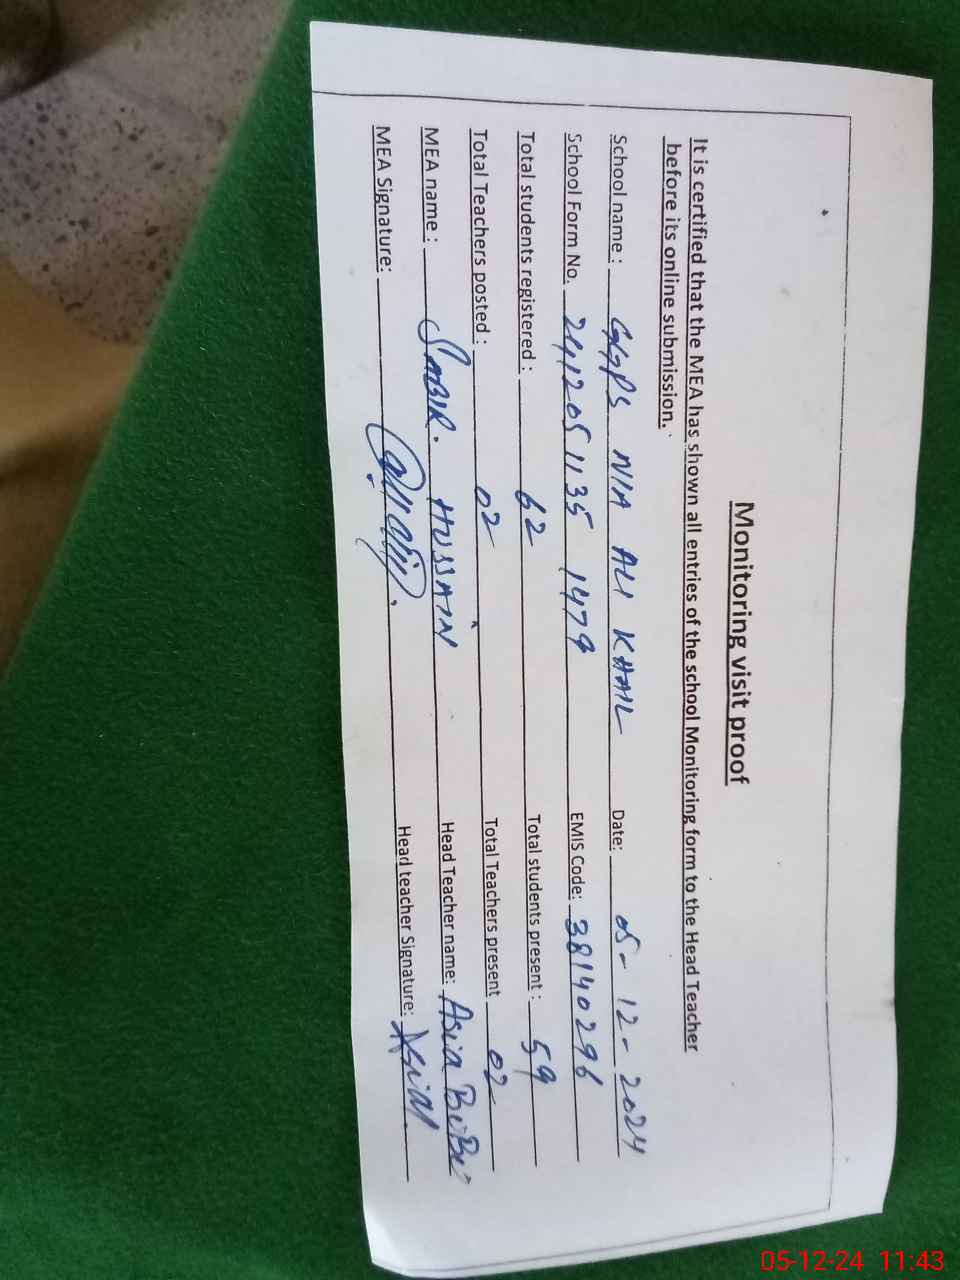 Monitoring visit proof
It is certified that the MEA has shown all entries of the school Monitoring form to the Head Teacher
before its online submission.
School name : GGPS NIA ALI KHAIL Date: 05-12-2024
School Form No. 2412051135 1479 EMIS Code: 38140296
Total students registered : 62 Total students present : 59
Total Teachers posted : 02 Total Teachers present 02
MEA name : SABIR. HUSSAIN Head Teacher name: Asia BiBi
MEA Signature: Head teacher Signature: Asia
05-12-24 11:43